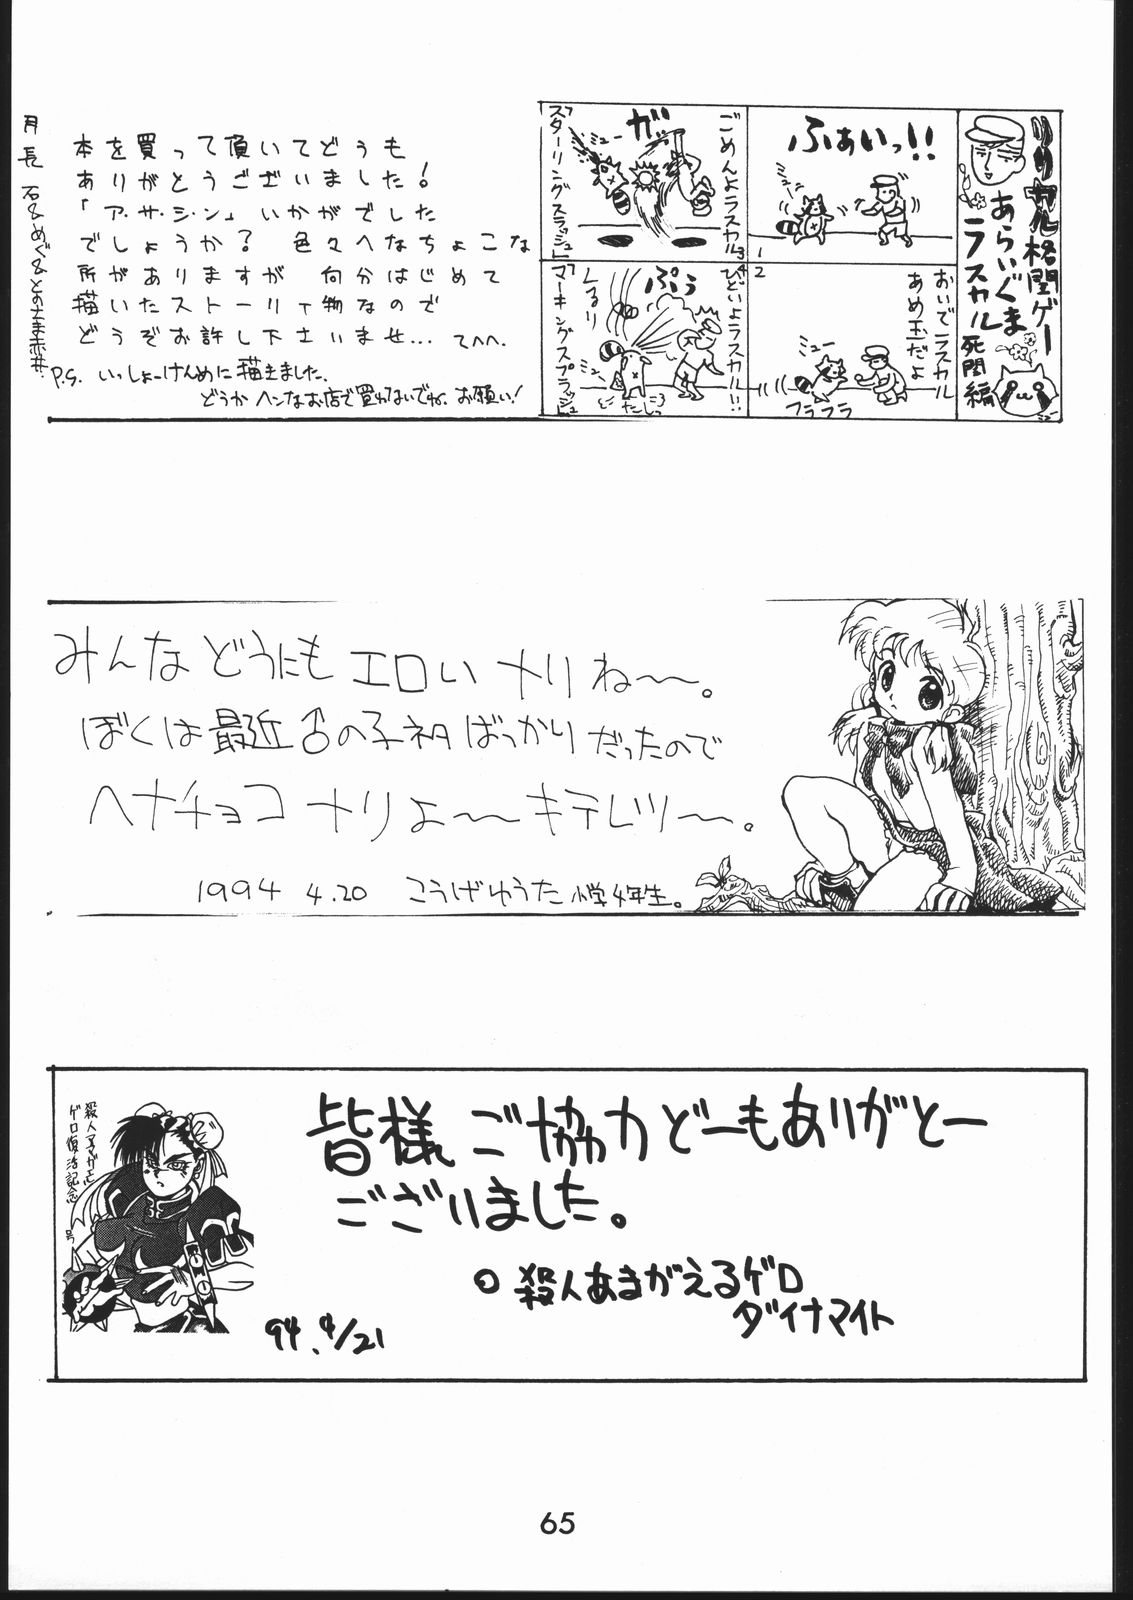 リリカル格闘ゲー
あらいぐま
ラスカル
死闘編
ふぁいっ!!
1
おいでラスカル
あめ玉だよ
2
ミュー
フラフラ
ごめんよラスカル
3
ガ
「スターリングスラッシュ」
ひどいよラスカル!!
4
ぷぅ
「マーキングスプラッシュ」
本を買って頂いてどうも
ありがとうございました!
「ア・サ・シ・ン」いかがでした
でしょうか? 色々へなちょこな
所がありますが 何分はじめて
描いたストーリィ物なので
どうぞお許し下さいませ… てへへ.
P.S. いっしょーけんめいに描きました.
どうかヘンなお店で買わないでね. お願い!
月長石&めぐ&とのさま赤井
みんなどうにもエロいナリねーー。
ぼくは最近♂の子ネタばっかりだったので
ヘナチョコナリよ〜〜キテレツ〜〜。
1994 4.20 こうげゆうた 小学4年生。
殺人アマガエル
ゲロ復活記念
号
皆様ご協力どーもありがとー
ございました。
○殺人あまがえるゲロ
ダイナマイト
94. 4/21
65